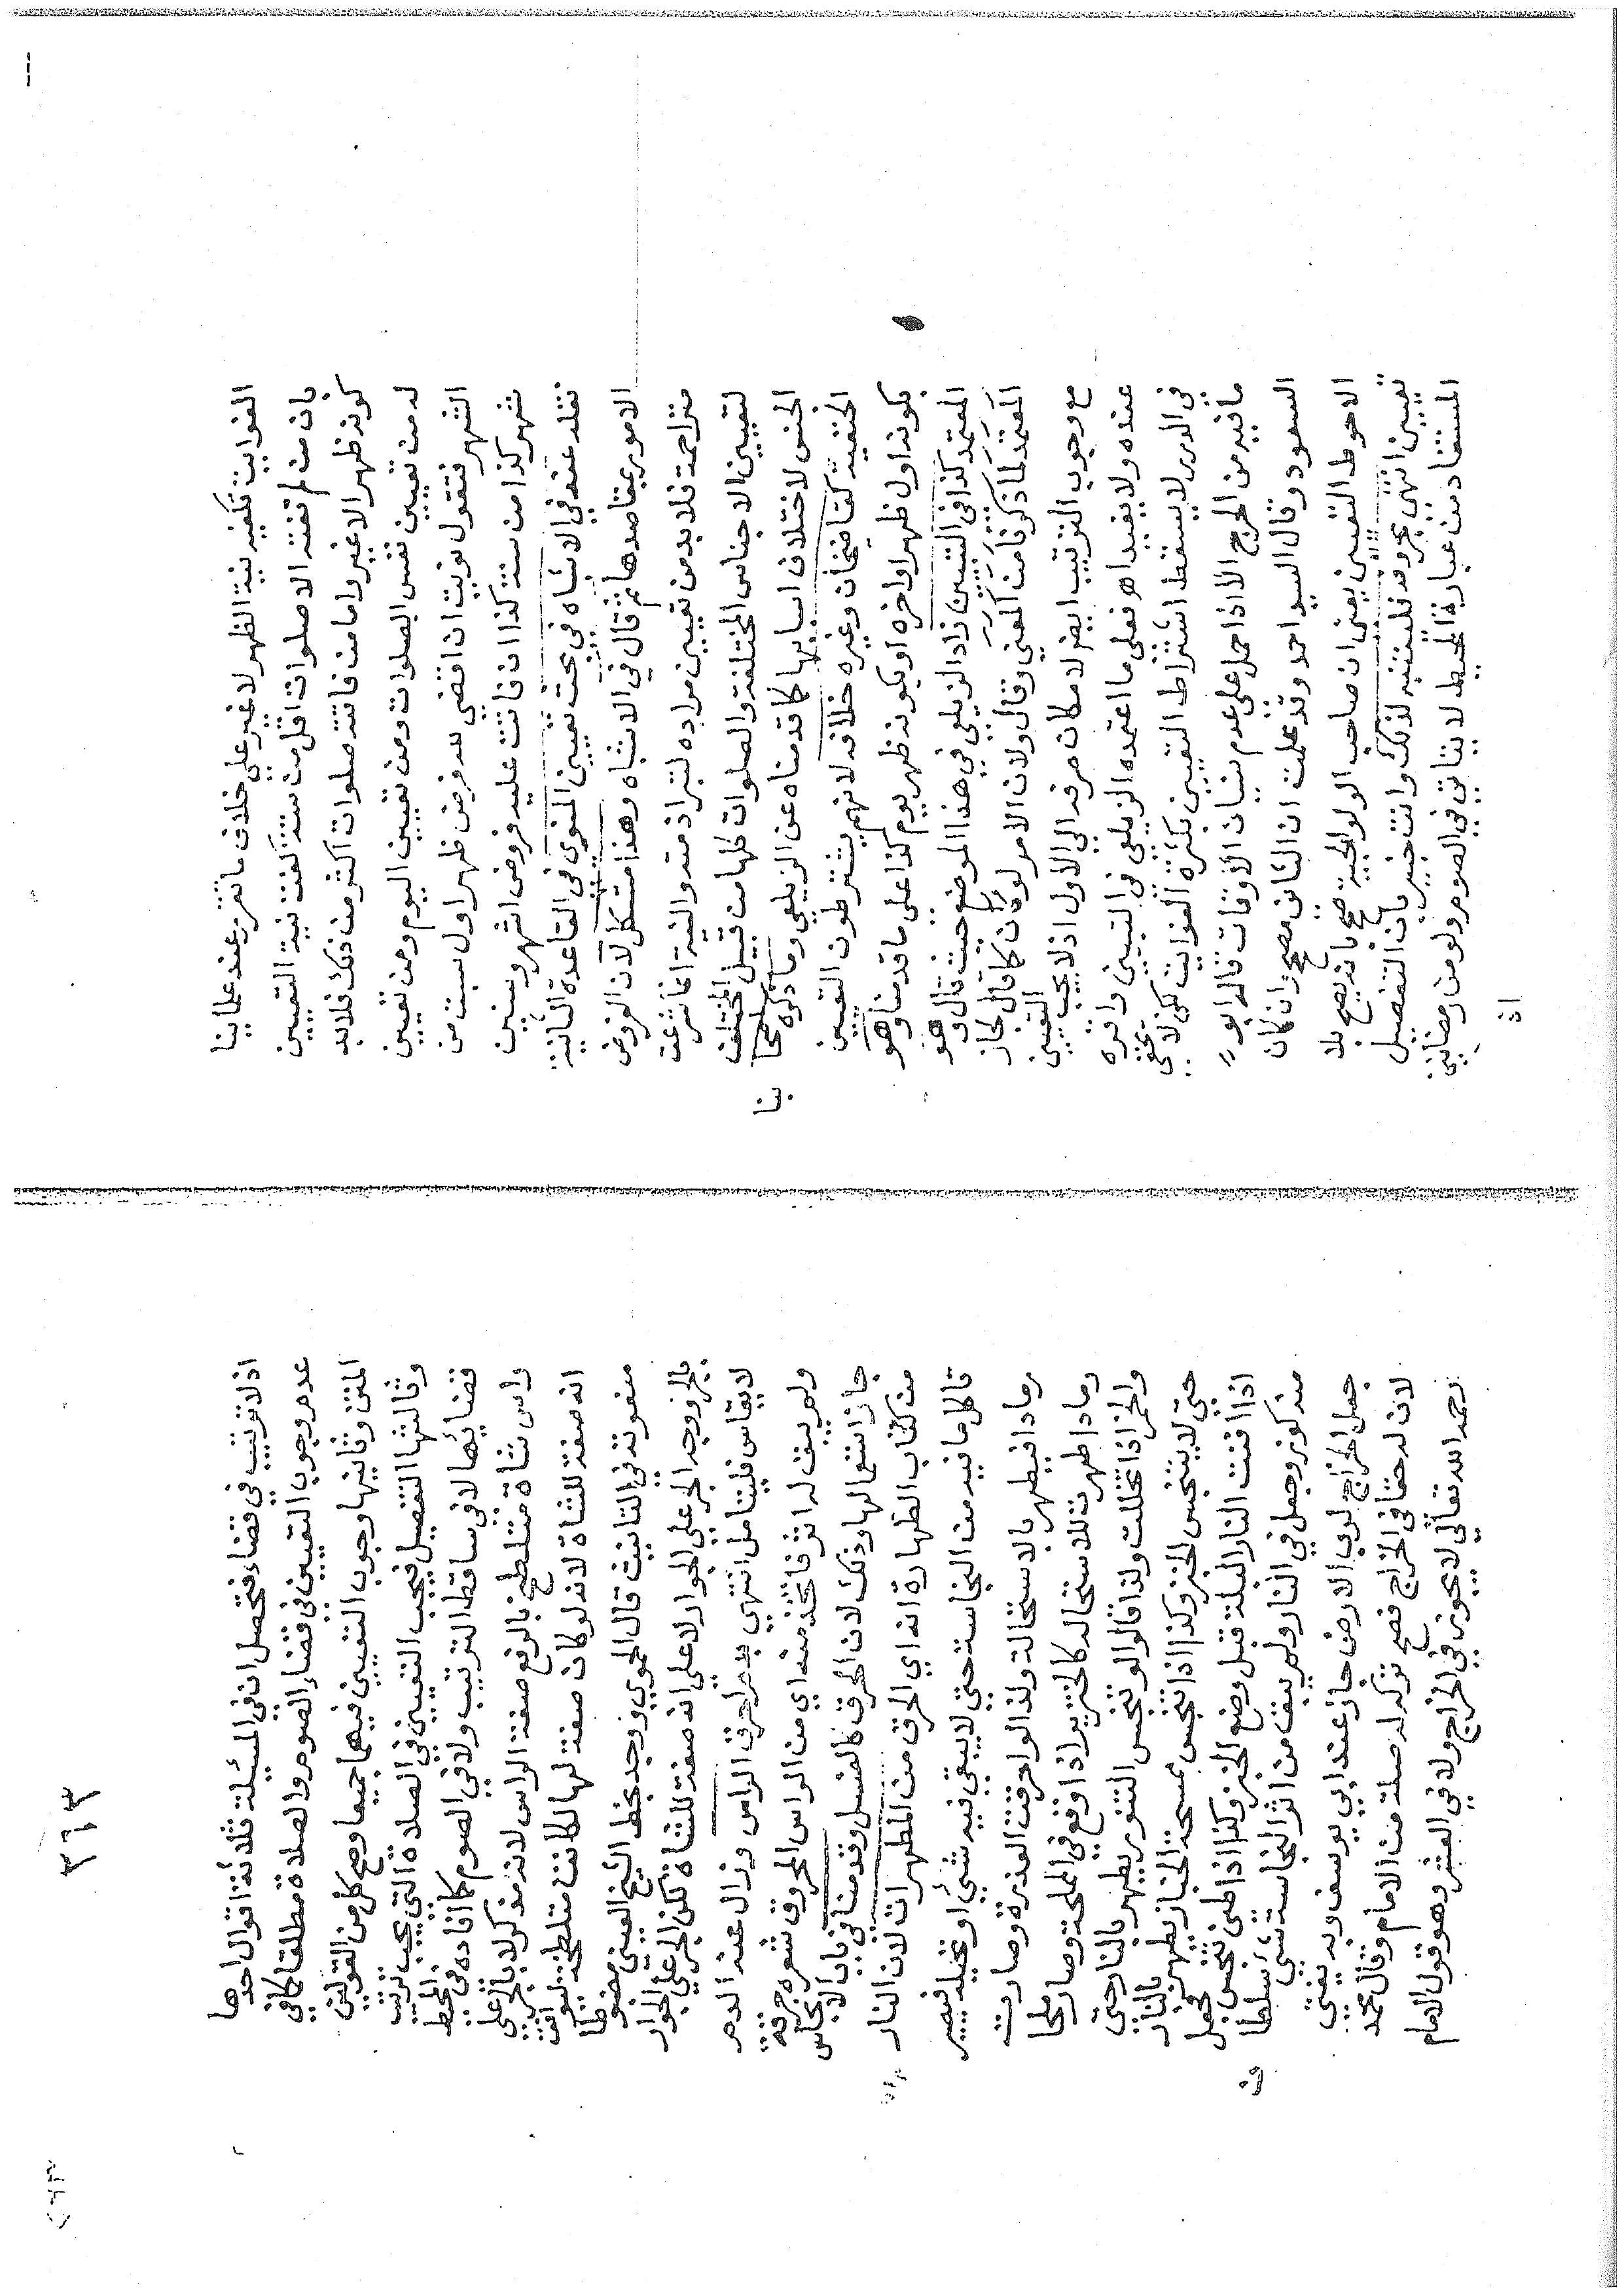 الفوايت تكفيه نية الظهر لا غير علي خلاف ما تقرر عند علمائنا
بان من لم تفته الا صلوات اقل من ستة كفته نية التعيين
كونه ظهرا لا غير واما من فاتته صلوات اكثر من ذلك فلابد
له من تعيين نفس الصلوات ومن تعيين اليوم ومن تعيين
الشهر فتقول نويت ان اقضي لله فرض ظهر اول سبت من
شهر كذا من سنة كذا ان فاتت عليه فروض اشهر وسنين
نقله عنه في الاشباه في بحث تعيين المنوي في القاعدة الثانية
الامور بمقاصدها ثم قال في الاشباه وهذا مشكل لان الفروض
متزاحمة فلابد من تعيين مراده لتبرا ذمته والنية انما شرعت
لتعيين الاجناس المختلفة والصلوات كلها من قبيل المختلف
الجنس لاختلاف اسبابها كما قدمناه عن الزيلعي وما ذكره
الحنفية كقاضيخان وغيره خلافه لانهم يشترطون التعيين
بكونه اول ظهر او اخره او بكونه ظهر يوم كذا علي ما قدمنا وهو
المعتمد كذا في التبيين زاد الزيلعي في هذا الموضع حيث قال وهو
المعتمد لما ذكرنا من المعني وقال ولان الامر لو كان كما قال لجاز
مع وجوب الترتيب ايضا لامكان صرفه الي الاول اذ لا يجب التعيين
عنده ولا يفيد اهـ فعلي ما اعتمده الزيلعي في التبيين واقره
في الدرر لا يسقط اشتراط التعيين بكثرة الفوايت لكن لا يخفي
ما فيه من الحرج الا اذا حمل علي عدم نسيان الاوقات قاله ابو
السعود وقال السيد احمد وقد علمت ان الثاني مصحح وان كان
الاحوط التعيين يعني ان صاحب الولوالجية صحح بانه يصح بلا
تعيين انتهي بحروفه فليتنبه لذلك وانت خبير بان التفصيل
المستفاد من عبارة المحيط لا يتاتي في الصوم ولو من رمضانين
اذ
٣٦٣
اذ لا ترتيب في قضاء فتحصل ان في المسئلة ثلاثة اقوال احدها
عدم وجوب التعيين في قضاء الصوم والصلاة مطلقا كما في
المتن وثانيها وجوب التعيين فيهما جميعا وصحح كل من القولين
وثالثها التفصيل فيجب التعيين في الصلاة التي يجب ترتيب
قضائها لا في ساقط الترتيب ولا في الصوم كما افاده في المحيط
راس شاة متلطخ بالرفع صفة الراس لانه مذكر لا بالجر علي
انه صفة للشاة لانه لو كان صفة لها لكانت متلطخة ليوافق
منعوته في التانيث قال الحموي ووجد بخط الشيخ العيني مضبوطا
بالجر ووجه الجر علي الجوار لا علي انه صفة للشاة لكن الجر علي الجوار
لا يقاس فليتامل انتهي بدم احرق الراس وزال عنه الدم
ولم يبق له اثر فاتخذ منه اي من الراس المحروق شعره مرقة
جاز استعمالها وذلك لان الحرق كالغسل وقدمنا في باب الانجاس
من كتاب الطهارة انه اي الحرق من المطهرات لان النار
تاكل ما فيه من النجاسة حتي لا يبقي فيه شيء او تحيله فيصير
رمادا فيطهر بالاستحالة ولذا لو احرقت العذرة وصارت
رمادا طهرت للاستحالة كالخنزير اذا وقع في المملحة وصار ملحا
والخمر اذا تخللت ولذا قالوا لو تنجس التنور يطهر بالنار حتي
حتي لا يتنجس الخبز وكذا اذا تنجس ممسحة الخباز يطهر بالنار
اذا افنت النار البلة قبل وضع الخبز وكذا اذا طين بنجس فجعل
منه كوز وجعل في النار ولم يبق من اثر النجاسة شيء سلطا
جعل الخراج لرب الارض جاز عند ابي يوسف وبه يفتي
لان له حقا في الخراج فصح تركه له صلة من الامام وقال محمد
رحمه الله تعالي لا يجوز في الخراج ولا في العشر وهو قول الامام